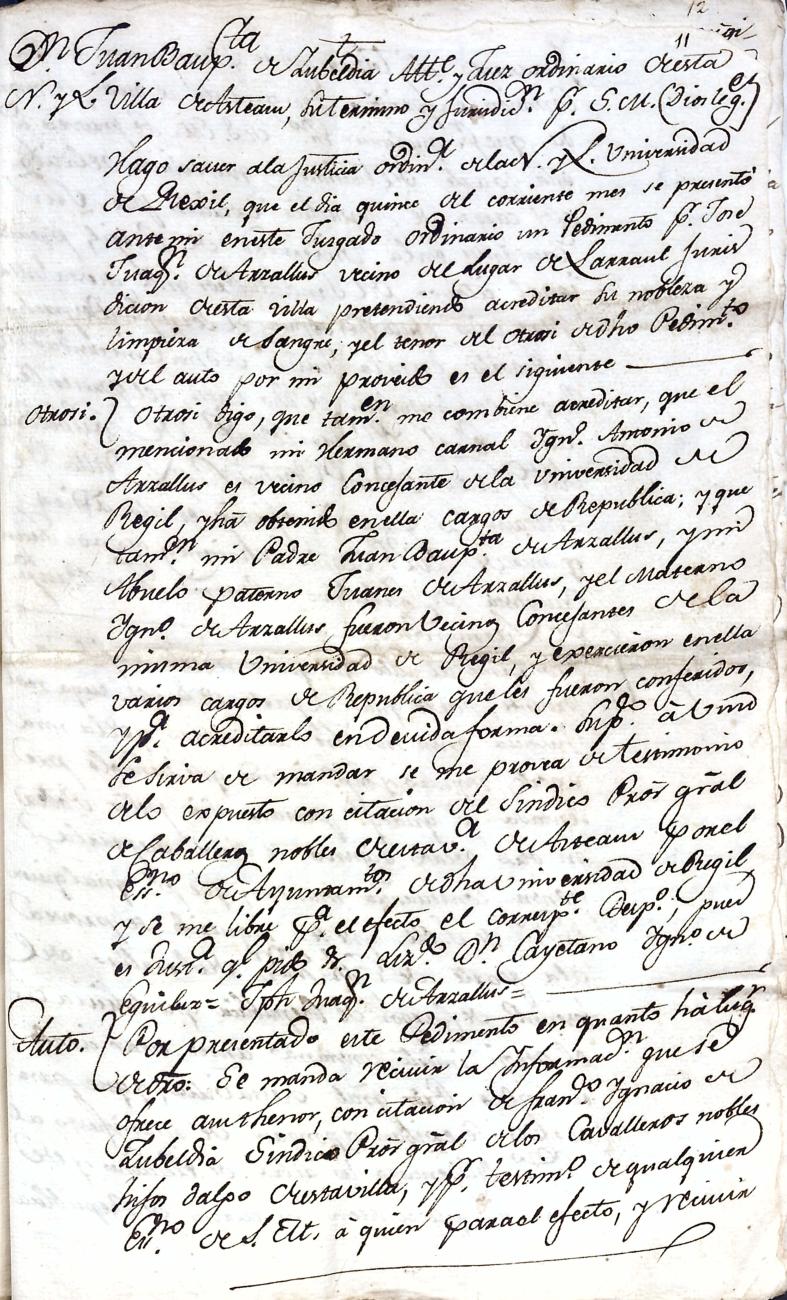 12
11
Dn Juan Baupta de Zubeldia Alte y Juez ordinario desta
N. y L. Villa de Asteasu, su termino y Juridicn pr. S. M. (Dios le ge)
Hago saver ala Justicia ordina de la N. y L. Universidad
de Rexil, que el dia quince del corriente mes se presentò
ante mi eneste Juzgado ordinario un Pedimento pr. Jose
Juaqn. de Arzallus vecino del Lugar de Larraul Juris
dicion desta villa pretendiendo acreditar su nobleza y
limpieza de sangre, y el tenor del otrosi de dho Pedimto
y del auto por mi proveido es el siguiente
otrosi. Otrosi digo, que tamen. me combiene acreditar, que el
mencionado mi Hermano carnal Igno. Antonio de
Arzallus es vecino Concejante de la Universidad de
Regil, y hà obtenido enella cargos de Republica; y que
tamn. mi Padre Juan Baupta de Arzallus, y mi
Abuelo paterno Juanes de Arzallus, y el Materno
Igno. de Arzallus fueron Vecinos Concejantes de la
misma Universidad de Regil, y exercieron enella
varios cargos de Republica que les fueron conferidos,
y pa. acreditarlo endevida forma. Supco. à Vmd
se sirva de mandar se me provea de testimonio
delo expuesto con citacion del Sindico Pror gral
de Caballeros nobles desta va. de Asteasu por el
Essno de Ayuntamto. de dha Universidad de Regil,
y se me libre pa. el efecto el correspte Despo., pues
es Justa. qe. pido &. Lizdo. Dn Cayetano Igno de
Eguiluz= Jph Juaqn. de Arzallus=
Auto. Por presentado este Pedimento en quanto hà lugr.
de dro: Se manda recivir la Informacn que se
ofrece asuthenor, con citacion de Franco. Ignacio de
Zubeldia Sindico Pror gral delos Cavalleros nobles
hijos dalgo desta villa, y pr. testimo. de qualquier
Essno de S. M. à quien para el efecto, y recivir